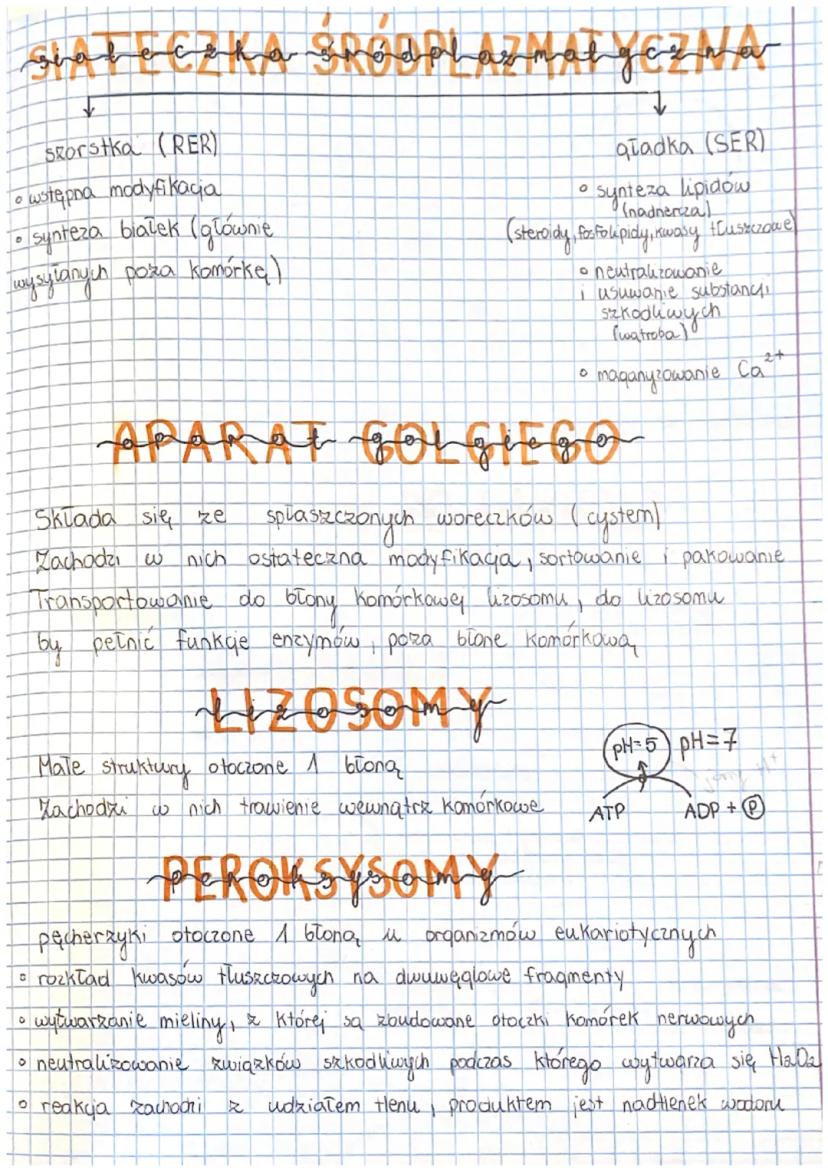 SIATECZKA ŚRÓDPLAZMATYCZNA
szorstka (RER)
• wstępna modyfikacja
• synteza białek (głównie
wysyłanych poza komórkę)
gładka (SER)
• synteza lipidów
(nadnercza)
(steroidy, fosfolipidy, kwasy tłuszczowe)
• neutralizowanie
i usuwanie substancji
szkodliwych
(wątroba)
• maganyzowanie Ca2+
APARAT GOLGIEGO
Składa się ze spłaszczonych woreczków (cystem)
Zachodzi w nich ostateczna modyfikacja, sortowanie i pakowanie
Transportowanie do błony komórkowej lizosomu, do lizosomu
by pełnić funkcje enzymów, poza błone komórkową
LIZOSOMY
Małe struktury otoczone 1 błoną
Zachodzi w nich trawienie wewnątrz komórkowe
pH=5 pH=7
ATP ADP + P
PEROKSYSOMY
pęcherzyki otoczone 1 błoną u organizmów eukariotycznych
• rozkład kwasów tłuszczowych na dwuwęglowe fragmenty
• wytwarzanie mieliny, z której są zbudowane otoczki komórek nerwowych
• neutralizowanie związków szkodliwych podczas którego wytwarza się H2O2
• reakcja zachodzi z udziałem tlenu, produktem jest nadtlenek wodoru